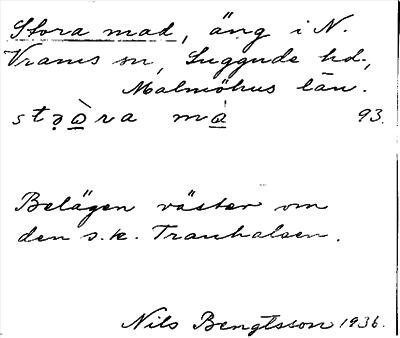 Stora mad, äng i N.
Vrams sn, Luggude hd.,
Malmöhus län.
sto̱ra ma̱ 93.
Belägen väster om
den s.k. Tranhalsen.
Nils Bengtsson 1936.